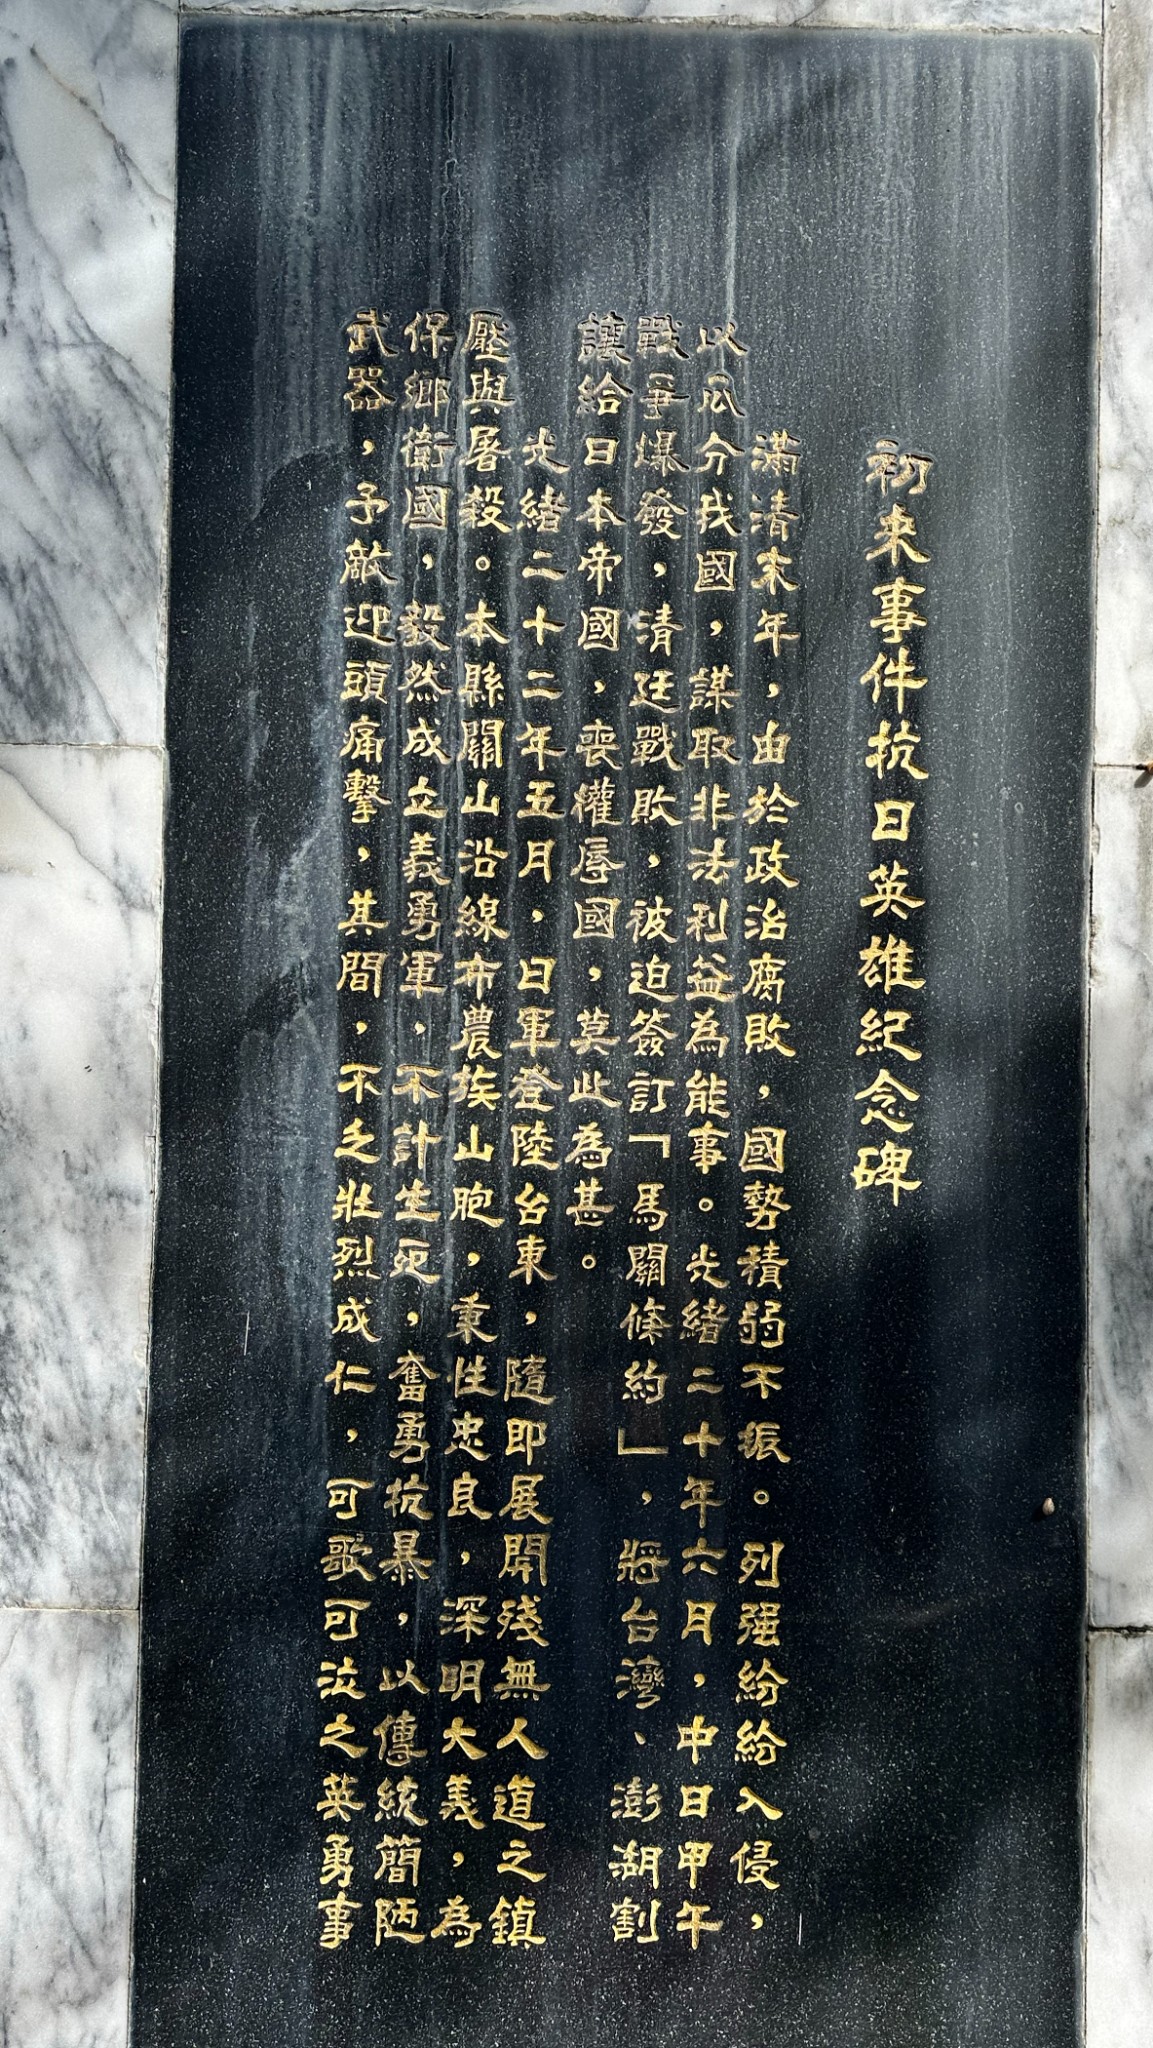 初來事件抗日英雄紀念碑
滿清末年，由於政治腐敗，國勢積弱不振。列强紛紛入侵，
以瓜分我國，謀取非法利益為能事。光緒二十年六月，中日甲午
戰爭爆發，清廷戰敗，被迫簽訂「馬關條約」，將台灣、澎湖割
讓給日本帝國，喪權辱國，莫此為甚。
光緒二十二年五月，日軍登陸台東，隨即展開殘無人道之鎮
壓與屠殺。本縣關山沿線布農族山胞，秉性忠良，深明大義，為
保鄉衛國，毅然成立義勇軍，不計生死，奮勇抗暴，以傳統簡陋
武器，予敵迎頭痛擊，其間，不乏壯烈成仁，可歌可泣之英勇事